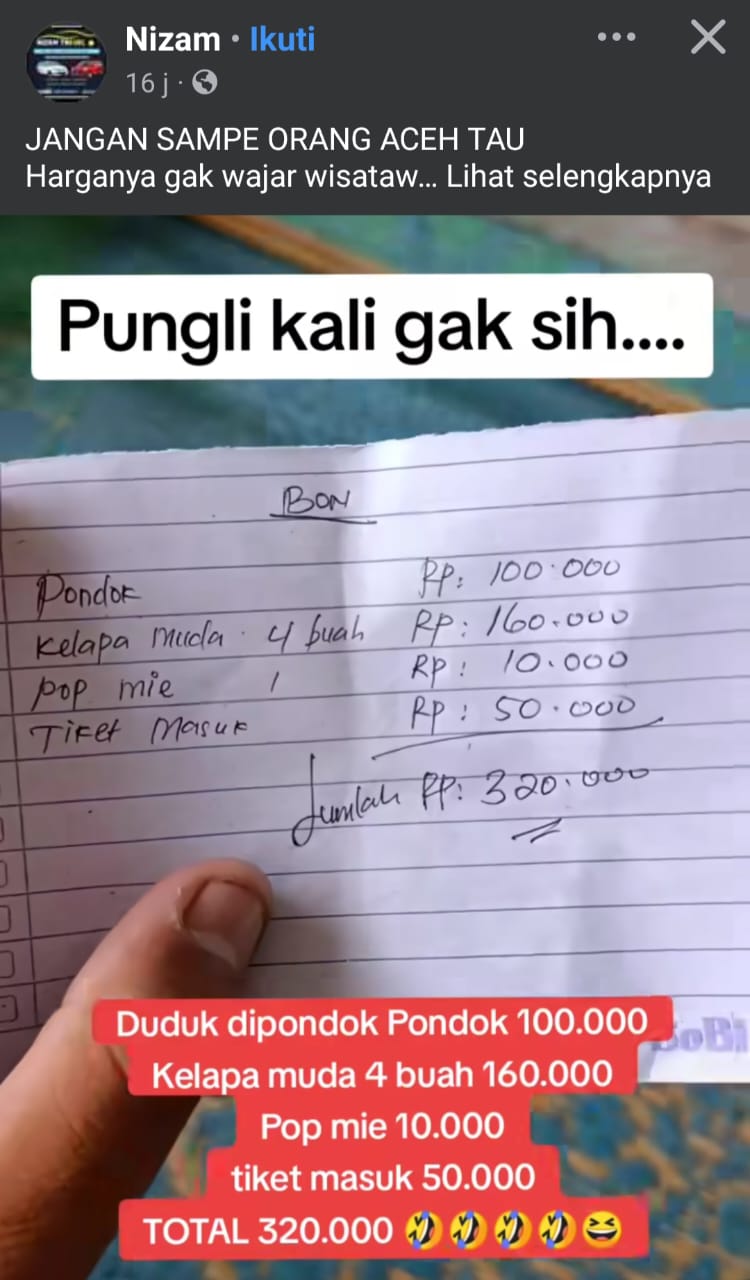 Nizam • Ikuti
16 j ·
JANGAN SAMPE ORANG ACEH TAU
Harganya gak wajar wisataw... Lihat selengkapnya
Pungli kali gak sih....
BON
Pondok RP: 100.000
Kelapa muda . 4 buah RP: 160.000
pop mie 1 RP: 10.000
Tiket Masuk RP: 50.000
Jumlah RP: 320.000
Duduk dipondok Pondok 100.000
Kelapa muda 4 buah 160.000
Pop mie 10.000
tiket masuk 50.000
TOTAL 320.000 🤣🤣🤣🤣😆